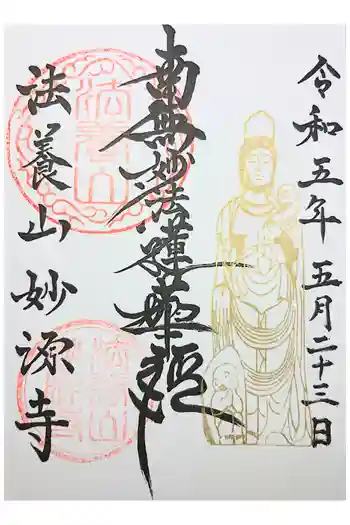 令和五年 五月二十三日
南無妙法蓮華経
法養山 妙源寺